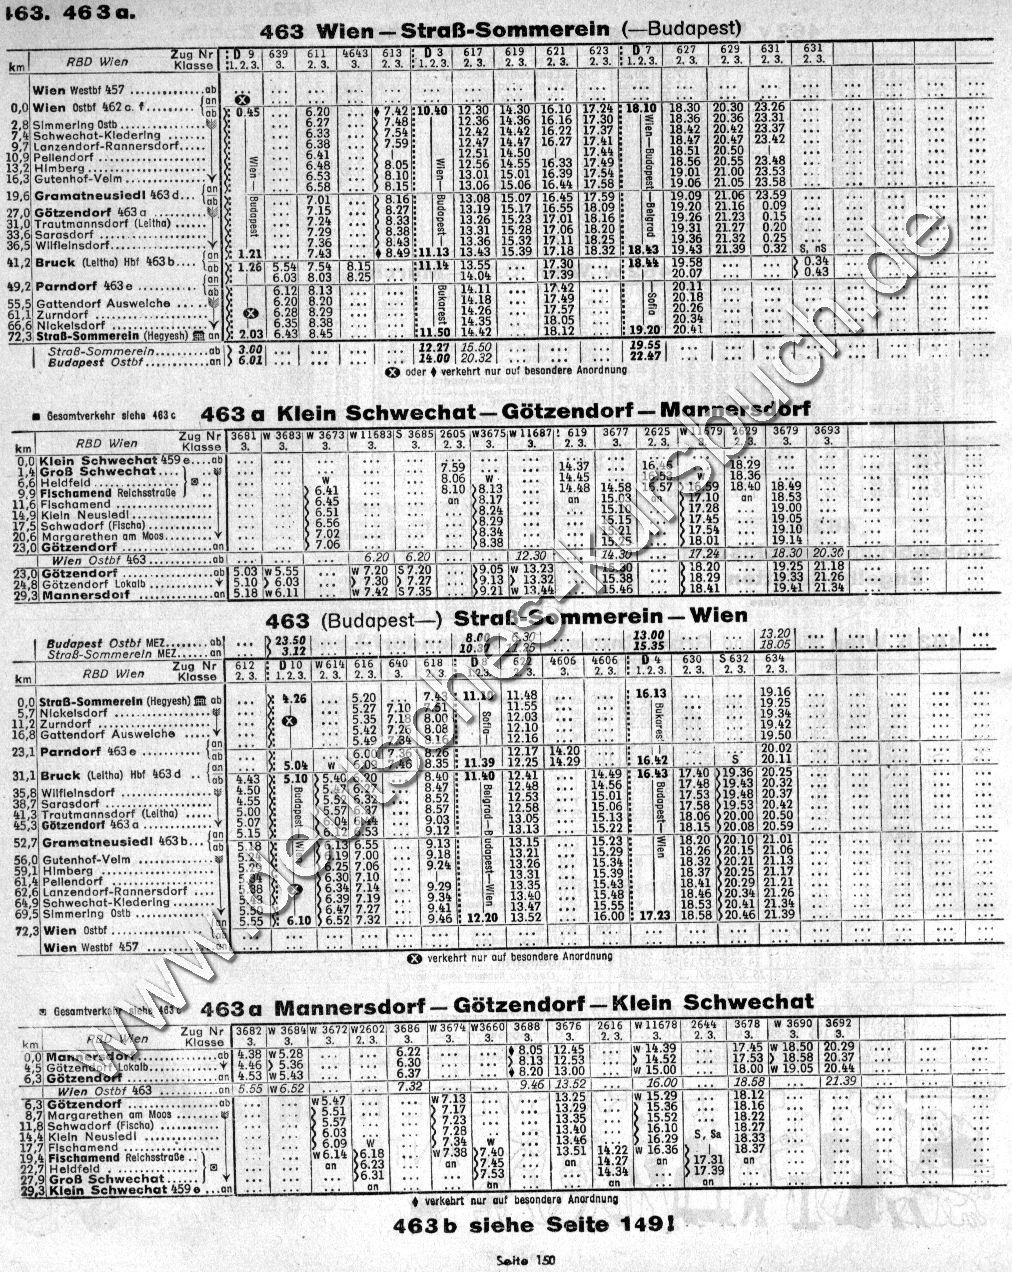 463. 463a.
463 Wien—Straß-Sommerein (—Budapest)
km RBD Wien Zug Nr Klasse D 9 1.2.3. 639 3. 611 2. 3. 4643 3. 613 2. 3. D 3 1.2.3. 617 2. 3. 619 2. 3. 621 2. 3. 623 2. 3. D 7 1.2.3. 627 2. 3. 629 2. 3. 631 2. 3. 631 2. 3.
Wien Westbf 457 ab
0,0 Wien Ostbf 462 a. f an ab 0.45 6.20 ♦ 7.42 10.40 12.30 14.30 16.10 17.24 18.10 18.30 20.30 23.26
2,8 Simmering Ostb 6.27 7.48 12.36 14.36 16.16 17.30 18.36 20.36 23.31
7,4 Schwechat-Kledering 6.33 7.54 12.42 14.42 16.22 17.37 18.42 20.42 23.37
9,7 Lanzendorf-Rannersdorf 6.38 7.59 12.47 14.47 16.27 17.41 18.47 20.47 23.42
10,9 Pellendorf 6.41 12.51 14.50 17.44 18.51 20.50
13,2 Himberg 6.48 8.05 12.56 14.55 16.33 17.49 18.56 20.55 23.48
16,3 Gutenhof-Velm 6.53 8.10 13.01 15.01 16.39 17.54 19.01 21.00 23.53
19,6 Gramatneusiedl 463 d an 6.58 8.15 13.06 15.06 16.44 17.58 19.06 21.05 23.58
ab 7.01 8.16 13.08 15.07 16.45 17.59 19.09 21.06 23.59
27,0 Götzendorf 463 a 7.15 8.27 13.19 15.17 16.55 18.09 19.20 21.16 0.09
31,0 Trautmannsdorf (Leitha) 7.24 8.33 13.26 15.23 17.01 18.16 19.26 21.23 0.15
33,6 Sarasdorf 7.29 8.38 13.31 15.28 17.06 18.20 19.31 21.27 0.20
36,5 Wilfleinsdorf 7.36 8.43 13.36 15.32 17.11 18.25 19.36 21.32 0.25
41,2 Bruck (Leitha) Hbf 463 b an 1.21 7.43 ♦ 8.49 11.13 13.43 15.39 17.18 18.32 18.43 19.43 21.39 0.32 S, nS
ab 1.26 5.54 7.54 8.15 11.14 13.55 17.30 18.44 19.58 0.34
49,2 Parndorf 463 e an 6.03 8.03 8.25 14.04 17.39 20.07 0.43
ab 6.12 8.13 14.11 17.42 20.11
55,5 Gattendorf Ausweiche 6.20 8.20 14.18 17.49 20.18
61,1 Zurndorf 6.28 8.29 14.26 17.57 20.26
66,6 Nickelsdorf 6.35 8.38 14.35 18.05 20.34
72,3 Straß-Sommerein (Hegyesh) an 2.03 6.43 8.45 11.50 14.42 18.12 19.20 20.41
Straß-Sommerein ab 3.00 12.27 15.50 19.55
Budapest Ostbf an 6.01 14.00 20.32 22.47
Wien — Budapest
Wien — Budapest Bukarest
Wien — Budapest — Belgrad — Sofia
⊗ oder ♦ verkehrt nur auf besondere Anordnung
■ Gesamtverkehr siehe 463 c 463 a Klein Schwechat—Götzendorf—Mannersdorf
km RBD Wien Zug Nr Klasse 3681 3. W 3683 3. W 3673 3. W 11683 3. S 3685 3. 2605 2. 3. W3675 3. W 11687 3. 619 2. 3. 3677 3. 2625 2. 3. W 11679 3. 2629 2. 3. 3679 3. 3693 3.
0,0 Klein Schwechat 459 e ab 7.59 14.37 18.29
1,4 Groß Schwechat 8.06 W 14.45 W 18.36
6,6 Heldfeld W
9,9 Fischamend Reichsstraße 6.41 8.10 8.13 14.48 14.58 16.57 16.59 18.40 18.49
11,6 Fischamend 6.45 an 8.17 an 15.03 an 17.10 an 18.53
14,9 Klein Neusiedl 6.51 8.24 15.10 17.28 19.00
17,5 Schwadorf (Fischa) 6.56 8.29 15.15 17.45 19.05
20,6 Margarethen am Moos 7.02 8.34 15.21 17.54 19.10
23,0 Götzendorf an 7.06 8.38 15.25 18.01 19.14
Wien Ostbf 463 ab 6.20 6.20 12.30 14.30 17.24 18.30 20.30
23,0 Götzendorf ab 5.03 W 5.55 W 7.20 S 7.20 9.05 W 13.23 15.30 18.20 19.25 21.18
24,8 Götzendorf Lokalb 5.10 6.03 7.30 7.27 9.13 13.32 15.38 18.29 19.33 21.26
29,3 Mannersdorf an 5.18 W 6.11 W 7.42 S 7.35 9.21 W 13.44 15.46 18.41 19.41 21.34
463 (Budapest—) Straß-Sommerein—Wien
Budapest Ostbf MEZ ab 23.50 8.00 6.30 13.00 13.20
Straß-Sommerein MEZ an 3.12 10.37 11.25 15.35 18.05
km RBD Wien Zug Nr Klasse 612 2. 3. D 10 1.2.3. W 614 2. 3. 616 2. 3. 640 2. 3. 618 2. 3. D 8 1.2.3. 622 2. 3. 4606 2. 3. 4606 2. 3. D 4 1.2.3. 630 2. 3. S 632 2. 3. 634 2. 3.
0,0 Straß-Sommerein (Hegyesh) ab 4.26 5.20 7.43 11.10 11.48 16.13 19.16
5,7 Nickelsdorf 5.27 7.10 7.51 11.55 19.25
11,2 Zurndorf 5.35 7.18 8.00 12.03 19.34
16,8 Gattendorf Ausweiche 5.42 7.26 8.08 12.10 19.42
23,1 Parndorf 463 e an 5.49 7.34 8.16 12.16 19.50
ab 6.00 7.36 8.26 12.17 14.20 20.02
31,1 Bruck (Leitha) Hbf 463 d an 5.04 W 6.09 7.46 8.35 11.39 12.25 14.29 16.42 S 20.11
ab 4.43 5.10 5.40 6.20 8.40 11.40 12.41 14.49 16.43 17.40 19.36 20.25
35,8 Wilfleinsdorf 4.50 5.47 6.27 8.47 12.48 14.56 17.48 19.43 20.32
38,7 Sarasdorf 4.55 5.52 6.32 8.52 12.53 15.01 17.53 19.48 20.37
41,3 Trautmannsdorf (Leitha) 5.00 5.57 6.37 8.57 12.58 15.06 17.58 19.53 20.42
45,3 Götzendorf 463 a 5.07 6.04 6.44 9.03 13.05 15.13 18.06 20.00 20.50
52,7 Gramatneusiedl 463 b an 5.15 6.12 6.53 9.12 13.13 15.22 18.15 20.08 20.59
ab 5.18 6.13 6.55 9.13 13.15 15.23 18.20 20.10 21.01
56,0 Gutenhof-Velm 6.19 7.00 9.18 13.21 15.29 18.26 20.15 21.06
59,1 Himberg 6.25 7.06 9.24 13.26 15.34 18.32 20.21 21.13
61,4 Pellendorf 6.30 7.10 13.31 15.39 18.37 20.25 21.17
62,6 Lanzendorf-Rannersdorf 6.34 7.14 9.29 13.35 15.43 18.41 20.29 21.21
64,9 Schwechat-Kledering 6.39 7.19 9.34 13.40 15.48 18.46 20.34 21.26
69,5 Simmering Ostb 6.47 7.27 9.41 13.47 15.55 18.53 20.41 21.34
72,3 Wien Ostbf an 5.55 6.10 6.52 7.32 9.46 12.20 13.52 16.00 17.23 18.58 20.46 21.39
ab
Wien Westbf 457 an
Sofia — Belgrad—Budapest—Wien
Bukarest — Budapest— Wien
⊗ verkehrt nur auf besondere Anordnung
Gesamtverkehr siehe 463 c 463a Mannersdorf—Götzendorf—Klein Schwechat
km RBD Wien Zug Nr Klasse 3682 3. W 3684 3. W 3672 3. W2602 2. 3. 3686 3. W 3674 3. W3660 3. 3688 3. 3676 3. 2616 2. 3. W 11678 3. 2644 2. 3. 3678 3. W 3690 3. 3692 3.
0,0 Mannersdorf ab 4.38 W 5.28 6.22 ♦ 8.05 12.45 W 14.39 17.45 W 18.50 20.29
4,5 Götzendorf Lokalb 4.46 5.36 6.30 8.13 12.53 14.52 17.53 18.58 20.37
6,3 Götzendorf an 4.53 W 5.43 6.37 ♦ 8.20 13.00 W 15.00 18.00 W 19.05 20.44
Wien Ostbf 463 an 5.55 W 6.52 7.32 9.46 13.52 16.00 18.58 21.39
6,3 Götzendorf ab W 5.47 W 7.13 13.25 W 15.29 18.12
8,7 Margarethen am Moos 5.51 7.17 13.29 15.36 18.16
11,8 Schwadorf (Fischa) 5.57 7.23 13.35 15.52 18.22
14,4 Klein Neusiedl 6.03 7.28 13.40 16.10 18.27
17,7 Fischamend 6.09 W 7.34 W 13.46 16.29 S, Sa 18.33
19,4 Fischamend Reichsstraße W 6.14 6.18 W 7.38 7.40 13.51 14.22 W 16.36 18.37
22,7 Heldfeld an 6.23 an 7.45 an 14.27 an 17.31 an
27,9 Groß Schwechat 6.31 7.53 14.34 17.39
29,3 Klein Schwechat 459 e an an an an
♦ verkehrt nur auf besondere Anordnung
463 b siehe Seite 149!
Seite 150
www.deutsches-kursbuch.de